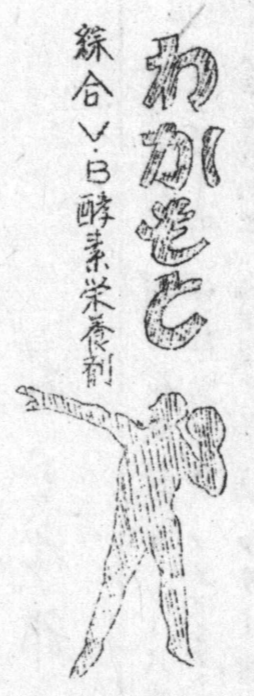 わかもと
綜合V.B酵素栄養剤